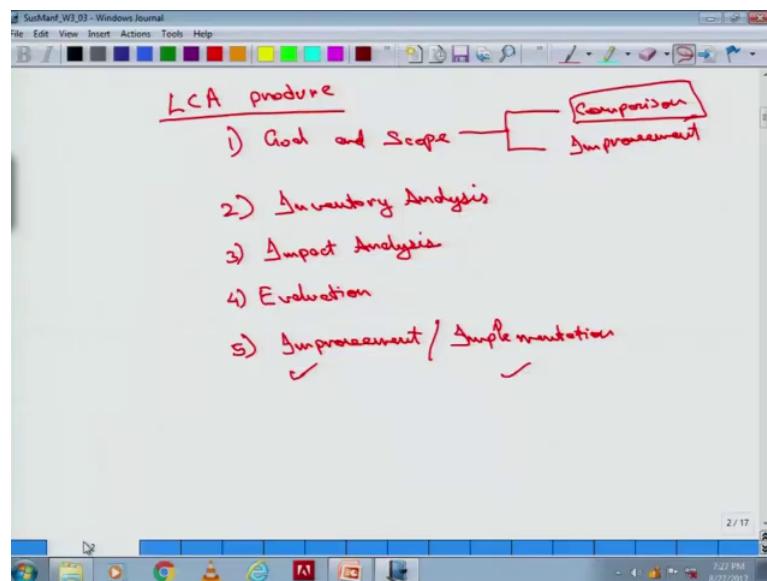 SusManf_W3_03 - Windows Journal
File Edit View Insert Actions Tools Help
LCA produre
1) Goal and Scope
Comparison
Improvement
2) Inventory Analysis
3) Impact Analysis
4) Evaluation
5) Improvement / Implementation
2 / 17
7:27 PM
8/27/2017